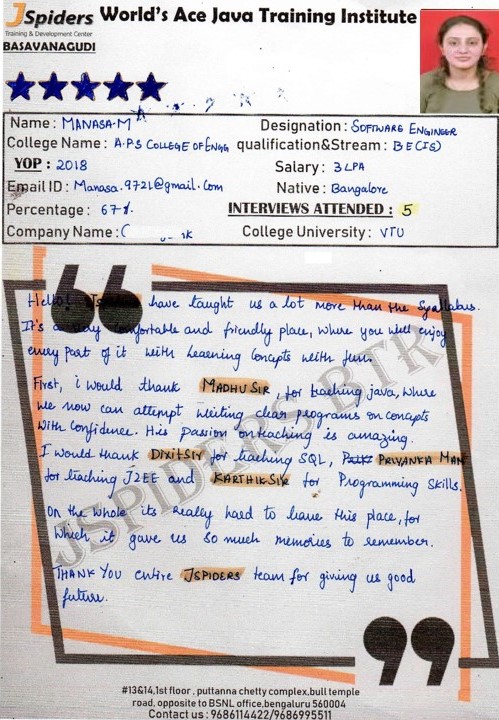 JSpiders
Training & Development Center
BASAVANAGUDI
World's Ace Java Training Institute
Name : MANASA-M
Designation : SOFTWARE ENGINEER
College Name : A.P.S COLLEGE OF ENGG
qualification&Stream : BE(IS)
YOP : 2018
Salary : 3 LPA
Email ID : Manasa.9721@gmail.com
Native : Bangalore
Percentage : 67%
INTERVIEWS ATTENDED : 5
Company Name :
College University : VTU
Hello! have taught us a lot more than the Syallabus.
It's a very comfortable and friendly place, where you will enjoy
every part of it with Learning Concepts with fun.
First, i would thank MADHU SIR, for teaching java, where
we now can attempt writing clear programs on concepts
with confidence. His passion on teaching is amazing.
I would thank DIXIT SIR for teaching SQL, PRIYANKA MAM
for teaching J2EE and KARTHIK SIR for Programming Skills.
On the whole its really hard to leave this place, for
which it gave us so much memories to remember.
THANK YOU entire JSPIDERS team for giving us good
future.
JSPIDERS BTR
#13&14,1st floor , puttanna chetty complex,bull temple
road, opposite to BSNL office,bengaluru 560004
Contact us : 9686114422/9686995511